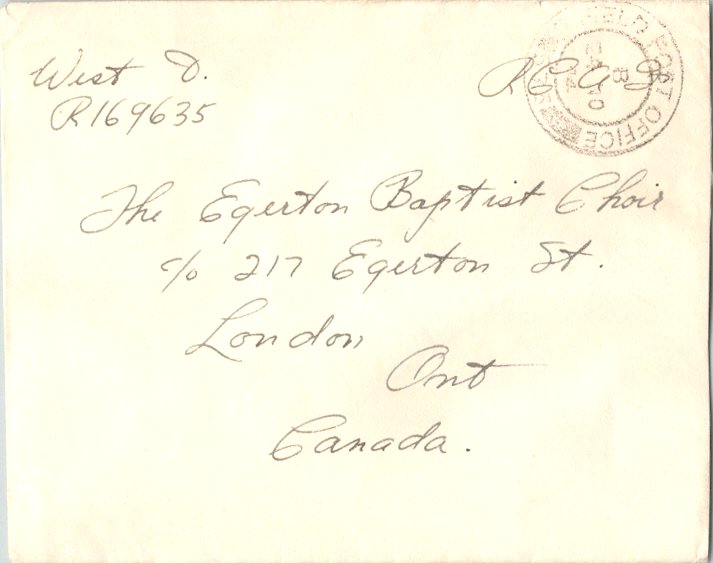 West D.
R169635
R C A F
FIELD POST OFFICE
The Egerton Baptist Choir
c/o 217 Egerton St.
London
Ont
Canada.